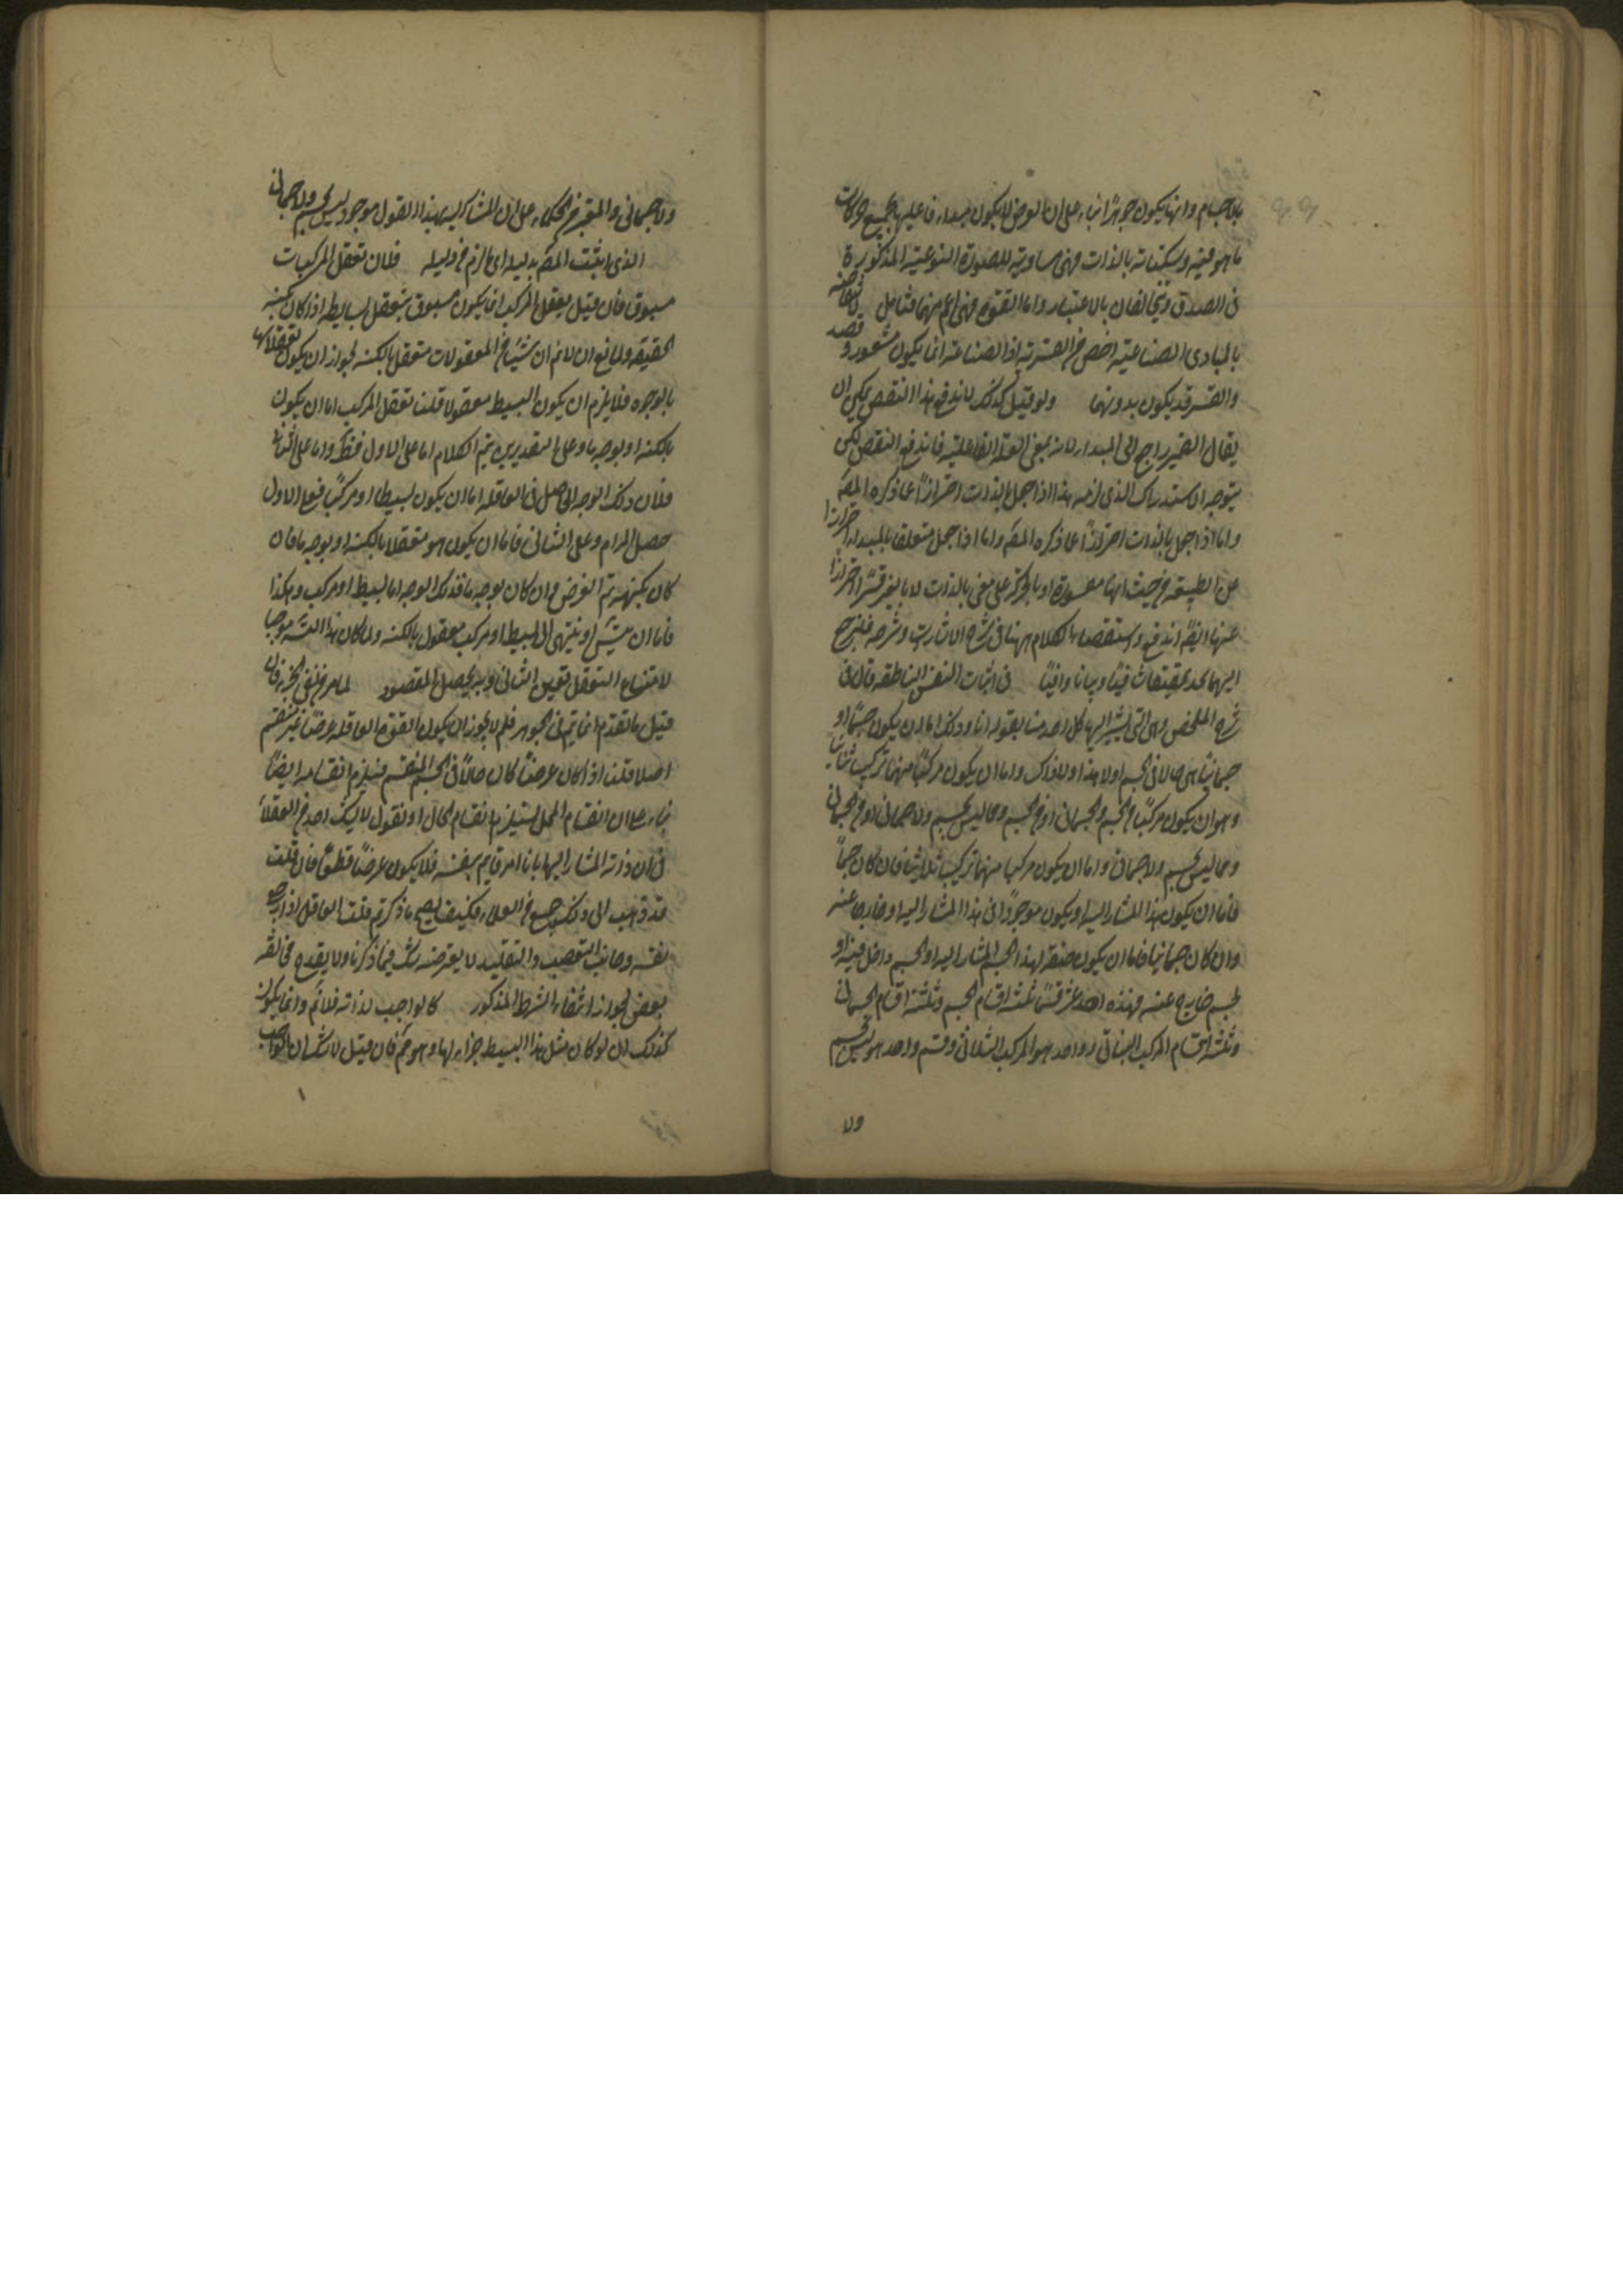 بالاجسام وانها يكون جوهرًا بناء على ان العرض لا يكون مبداء فاعليها لجميع حركات
ما هو فيه وسكناته بالذات فهى مساوية للصورة النوعية المذكورة
فى الصدق ويتخالفان بالاعتبار واما القوة فهى اعم منهما فتامل
بالمبادى الصناعية اخص من القسرية اذ الصناعة انما يكون بشعور وقصد
والقسر قد يكون بدونهما ولو قيل كذلك لاندفع هذا النقض يمكن ان
يقال الضمير راجع الى المبداء لانه بمعنى العلة الفاعلية فاندفع النقض لكن
يتوجه الاستدراك الذى لزمه هذا اذا جعل بالذات احترازًا عما ذكره المص
واما اذا جعل بالذات احترازًا عما ذكره المص واما اذا جعل متعلقا بالمبداء احترازا
عن الطبيعة من حيث انها او بالحركة على معنى بالذات لا بالغير قسرًا احترازا
عنها ايضًا اندفع واستقصاء الكلام ههنا فى شرح الاشارات وشرحه فليرجع
اليهما فى اثبات النفس الناطقة قال فى
شرح الملخص وهى التى يشير اليها كل احد منا بقوله انا وذلك اما ان يكون جسمًا او
جسمانيًا اى حالا فى الجسم او لا هذا ولا ذاك واما ان يكون مركبًا منهما تركيبا ثنائيا
وهو ان يكون مركبًا من الجسم والجسمانى او من الجسم وما ليس بجسم ولا جسمانى او من الجسمانى
ومما ليس بجسم ولا جسمانى واما ان يكون مركبا منهما تركيبا ثلاثيا فان كان جسمًا
فاما ان يكون هذا المشار اليه او يكون موجودًا فى هذا المشار اليه او خارجا عنه
وان كان جسمانيا فاما ان يكون صفة لهذا الجسم المشار اليه او لجسم داخل فيه او
لجسم خارج عنه فهذه احد عشر قسمًا ثلثة اقسام الجسم وثلثة اقسام الجسمانى
وثلثة اقسام المركب الثنائى وواحد هو المركب الثلاثى وقسم واحد هو ليس بجسم
ولا
ولا جسمانى والمعتبر من الحكماء على ان المشار اليه بهذا القول موجود ليس بجسم ولا جسمانى
الذى اثبت المص بدليله اى لازم من دليله فلان تعقل المركبات
مسبوق فان قيل تعقل المركب انما يكون مسبوق بتعقل بسايطه اذا كان بكنه
الحقيقة ولمانع ان لا نم ان شيئًا من المعقولات متعقل بالكنه لجواز ان يكون تعقلاتها
بالوجوه فلا يلزم ان يكون البسيط معقولا قلت تعقل المركب اما ان يكون
بالكنه او بوجه ما وعلى التقديرين يتم الكلام اما على الاول فظ واما على الثانى
فلان ذلك الوجه الحاصل فى العاقلة اما ان يكون بسيطا او مركبًا فعلى الاول
حصل المرام وعلى الثانى فاما ان يكون هو متعقلا بالكنه او بوجه ما فان
كان بكنهه تم الغرض وان كان بوجه ما فذلك الوجه اما بسيط او مركب وهكذا
فاما ان يتس او ينتهى الى البسيط او مركب معقول بالكنه ولما كان هذا التس موجبا
لامتناع التعقل تعين الثانى وبه يحصل المقصود لما مر من نفى الجزء فان
قيل ما تقدم انما يتم فى الجوهر فلم لا يجوز ان يكون القوة العاقلة عرضًا غير منقسم
اصلا قلت اذا كان عرضًا كان حالًا فى الجسم المنقسم فيلزم انقسامه ايضًا
بناء على ان انقسام المحل يستلزم انقسام الحال او نقول لا يشك احد من العقلاء
فى ان ذاته المشار اليها بانا امر قايم بنفسه فلا يكون عرضًا قطعًا فان قلت
قد ذهب الى ذلك جمع من العلماء فكيف يصح ما ذكرتم قلت العاقل اذا راجع
نفسه وجانب التعصب والتقليد لا يعترضه شك فيما ذكرنا ولا يقدح مخالفة
بعض لجواز انتفاء الشرط المذكور كالواجب لذاته فلا نم وانما يكون
كذلك ان لو كان مثل هذا البسيط جزاء لها وهو مم فان قيل لا شك ان الواجب